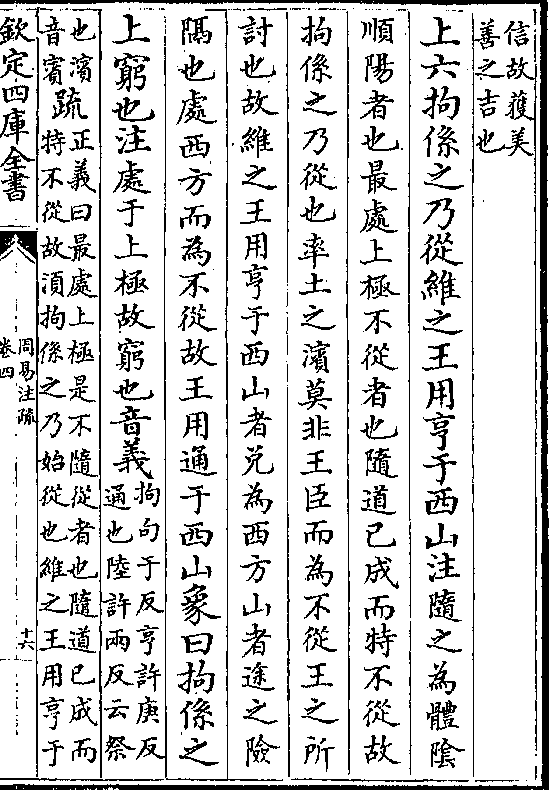 信故獲美
善之吉也
上六拘係之乃從維之王用亨于西山注隨之為體陰
順陽者也最處上極不從者也隨道已成而特不從故
拘係之乃從也率土之濱莫非王臣而為不從王之所
討也故維之王用亨于西山者兌為西方山者途之險
隔也處西方而為不從故王用通于西山象曰拘係之
上窮也注處于上極故窮也音義拘句于反亨許庚反
通也陸許兩反云祭
也濱
音賓疏正義曰最處上極是不隨從者也隨道已成而
特不從故須拘係之乃始從也維之王用亨于
欽定四庫全書
周易注疏
卷四
十六